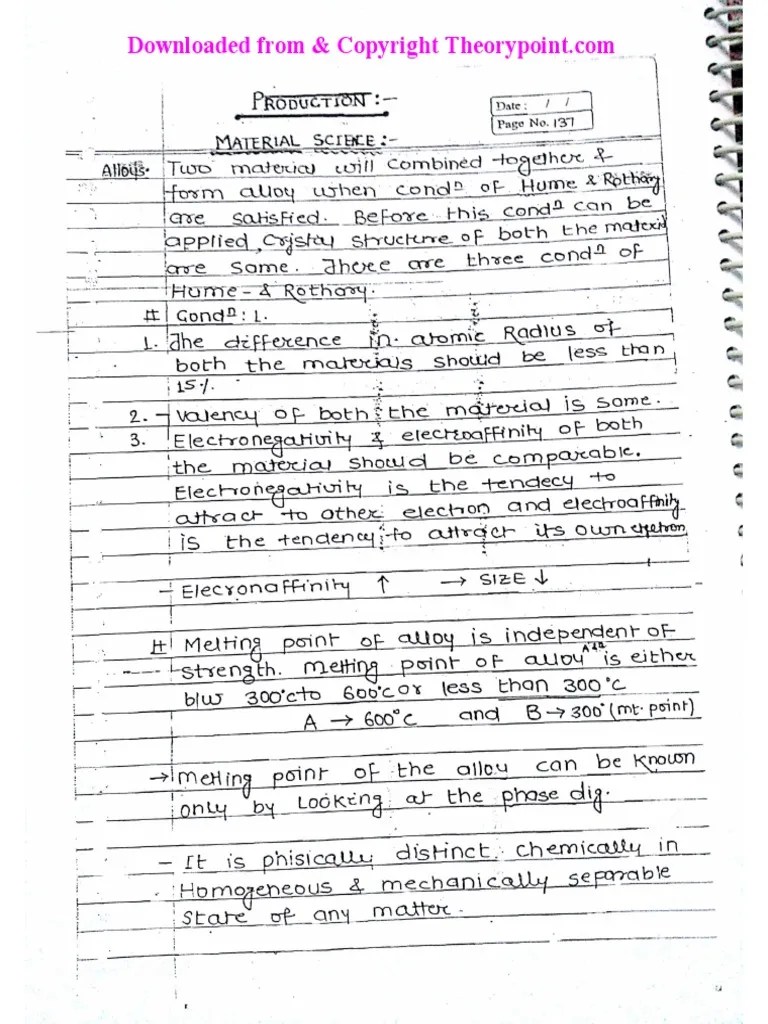 Downloaded from & Copyright Theorypoint.com
PRODUCTION :-
Date : / /
Page No. 137
MATERIAL SCIECE :-
Alloys. Two material will combined together &
form alloy when condn of Hume & Rothary
are satisfied. Before this condn can be
applied, Crystal structure of both the material
are same. There are three condn of
Hume - & Rothory.
# Condn : 1.
1. The difference in atomic Radius of
both the materials should be less than
15%.
2. - Valency of both the material is same.
3. Electronegativity & electroaffinity of both
the material should be comparable.
Electronegativity is the tendecy to
attract to other electron and electroaffinity
is the tendency to attract its own electron
- Elecronaffinity ↑ → SIZE ↓
# Melting point of alloy is independent of
strength. Melting point of alloy is either
b/w 300°c to 600°c or less than 300°c
A → 600°c and B → 300° (mt. point)
→ Melting point of the alloy can be known
only by looking at the phase dig.
- It is phisically distinct, chemically in
Homogeneous & mechanically separable
state of any matter.